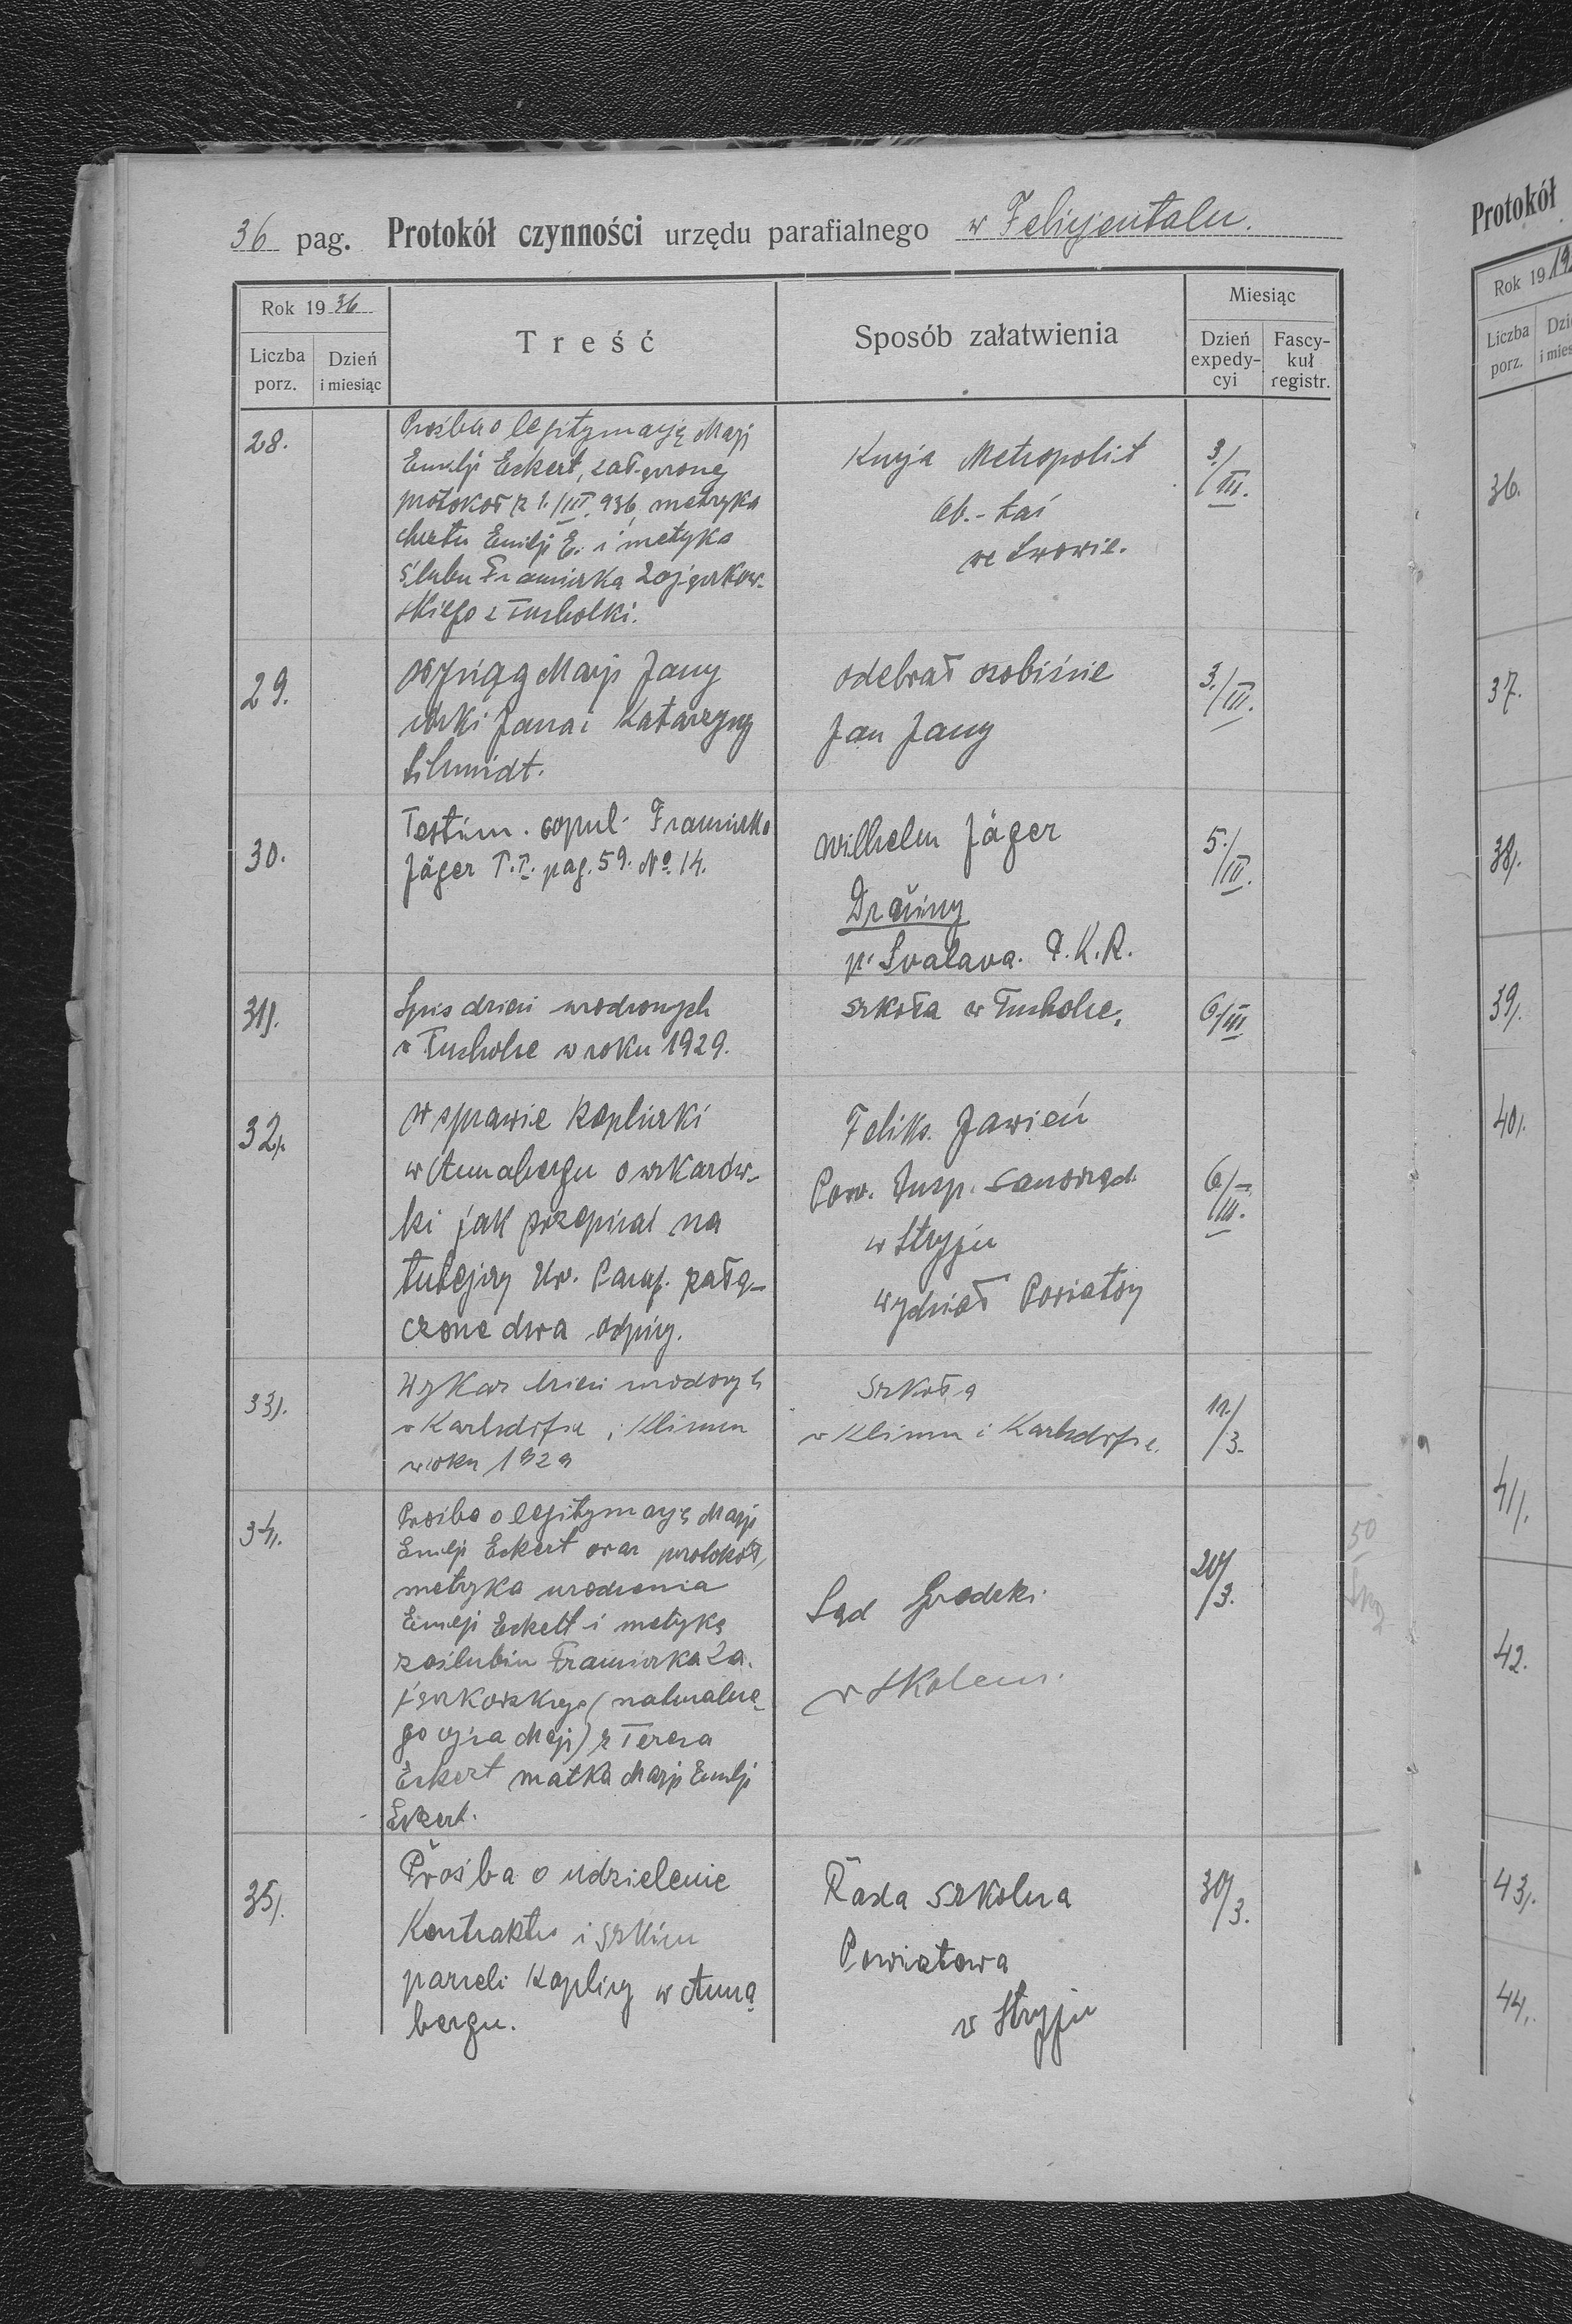 36 pag. Protokół czynności urzędu parafialnego w Felicjentalu.
Rok 1936
Liczba porz.
Dzień i miesiąc
Treść
Sposób załatwienia
Miesiąc
Dzień expedy-cyi
Fascy-kuł registr.
28.
Prośba o legitymację Marji
Emilji Eckert, załączone
protokół z 1./III. 936, metryka
chrztu Emilji E. i metryka
ślubu Franciszka Zajączkow-
skiego z Tucholki.
Kurja Metropolit
ob.-łać
we Lwowie.
3./III.
29.
Odpis Marji Jany
córki Jana i Katarzyny
Schmidt.
odebrał osobiście
Jan Jany
3./III.
30.
Testim. copul. Franciszka
Jäger T.I. pag. 59. No. 14.
Wilhelm Jäger
Dračiny
p. Svalava. P.K.R.
5./III.
31).
Spis dzieci urodzonych
w Tucholce w roku 1929.
szkoła w Tucholce.
6./III
32).
W sprawie kapliczki
w Annabergu o wskazów-
ki jak przepisać na
tutejszy Urz. Paraf. załą-
czone dwa odpisy.
Feliks Jawień
Pow. Insp. Samorząd.
w Stryju
Wydział Powiatowy
6/III.
33).
Wykaz dzieci urodzonych
w Karlsdorfie i Klimcu
w roku 1929
Szkoła
w Klimcu i Karlsdorfie.
12./3.
34).
Prośba o legitymację Marji
Emilji Eckert oraz protokół,
metryka urodzenia
Emilji Eckert i metykę
zaślubin Franciszka Za-
jączkowskiego (naturalne-
go ojca Marji) z Teresa
Eckert matka Marji Emilji
Eckert.
Sąd Grodzki
w Skolem.
20/3.
35).
Prośba o udzielenie
Kontraktu i szkicu
parceli Kaplicy w Anna
bergu.
Rada Szkolna
Powiatowa
w Stryju
30/3.
50
Protokół
Rok 19
Liczba porz.
36.
37.
38).
39).
40).
41).
42.
43).
44.